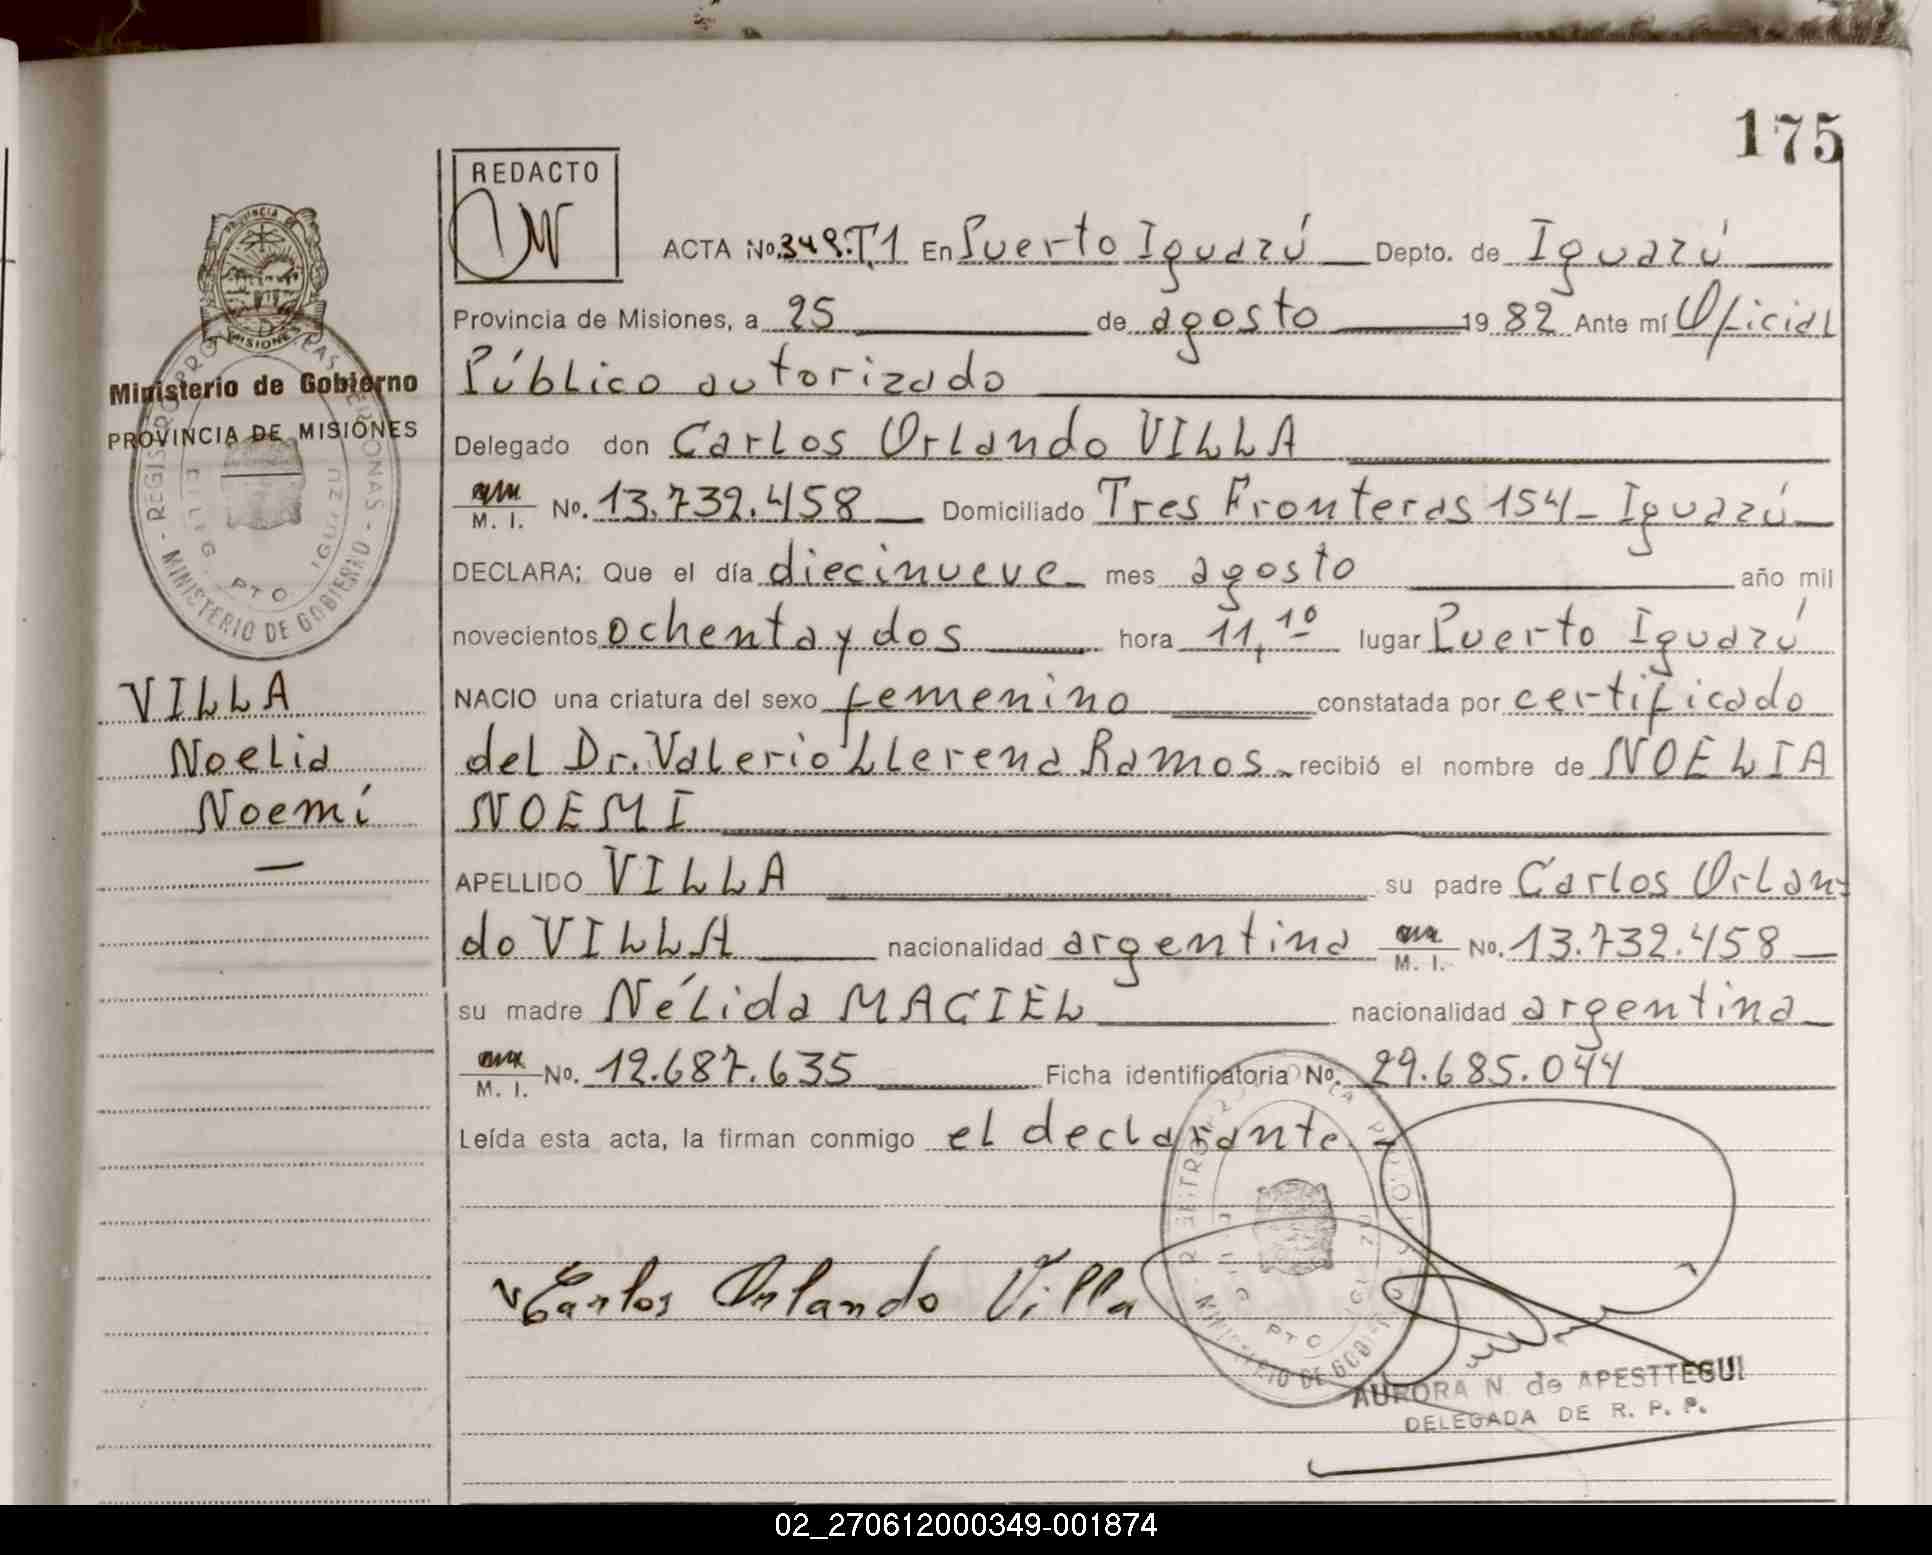 175
REDACTO
ACTA No. 349.T.1 En Puerto Iguazú Depto. de Iguazú
Provincia de Misiones, a 25 de agosto 1982 Ante mí Oficial
Público autorizado
Delegado don Carlos Orlando VILLA
M. I. No. 13.732.458 Domiciliado Tres Fronteras 154 - Iguazú
DECLARA; Que el día diecinueve mes agosto año mil
novecientos ochenta y dos hora 11,10 lugar Puerto Iguazú
NACIO una criatura del sexo femenino constatada por certificado
del Dr. Valerio Llerena Ramos recibió el nombre de NOELIA
NOEMI
APELLIDO VILLA su padre Carlos Orlan-
do VILLA nacionalidad argentina M. I. No. 13.732.458
su madre Nélida MACIEL nacionalidad argentina
M. I. No. 12.687.635 Ficha identificatoria No. 29.685.044
Leída esta acta, la firman conmigo el declarante.
Carlos Orlando Villa
AURORA N. de APESTTEGUI
DELEGADA DE R. P. P.
PROVINCIA DE
MISIONES
Ministerio de Gobierno
PROVINCIA DE MISIONES
MINISTERIO DE GOBIERNO
PTO IGUAZU
VILLA
Noelia
Noemí
MINISTERIO DE GOBIERNO
PTO
02_270612000349-001874